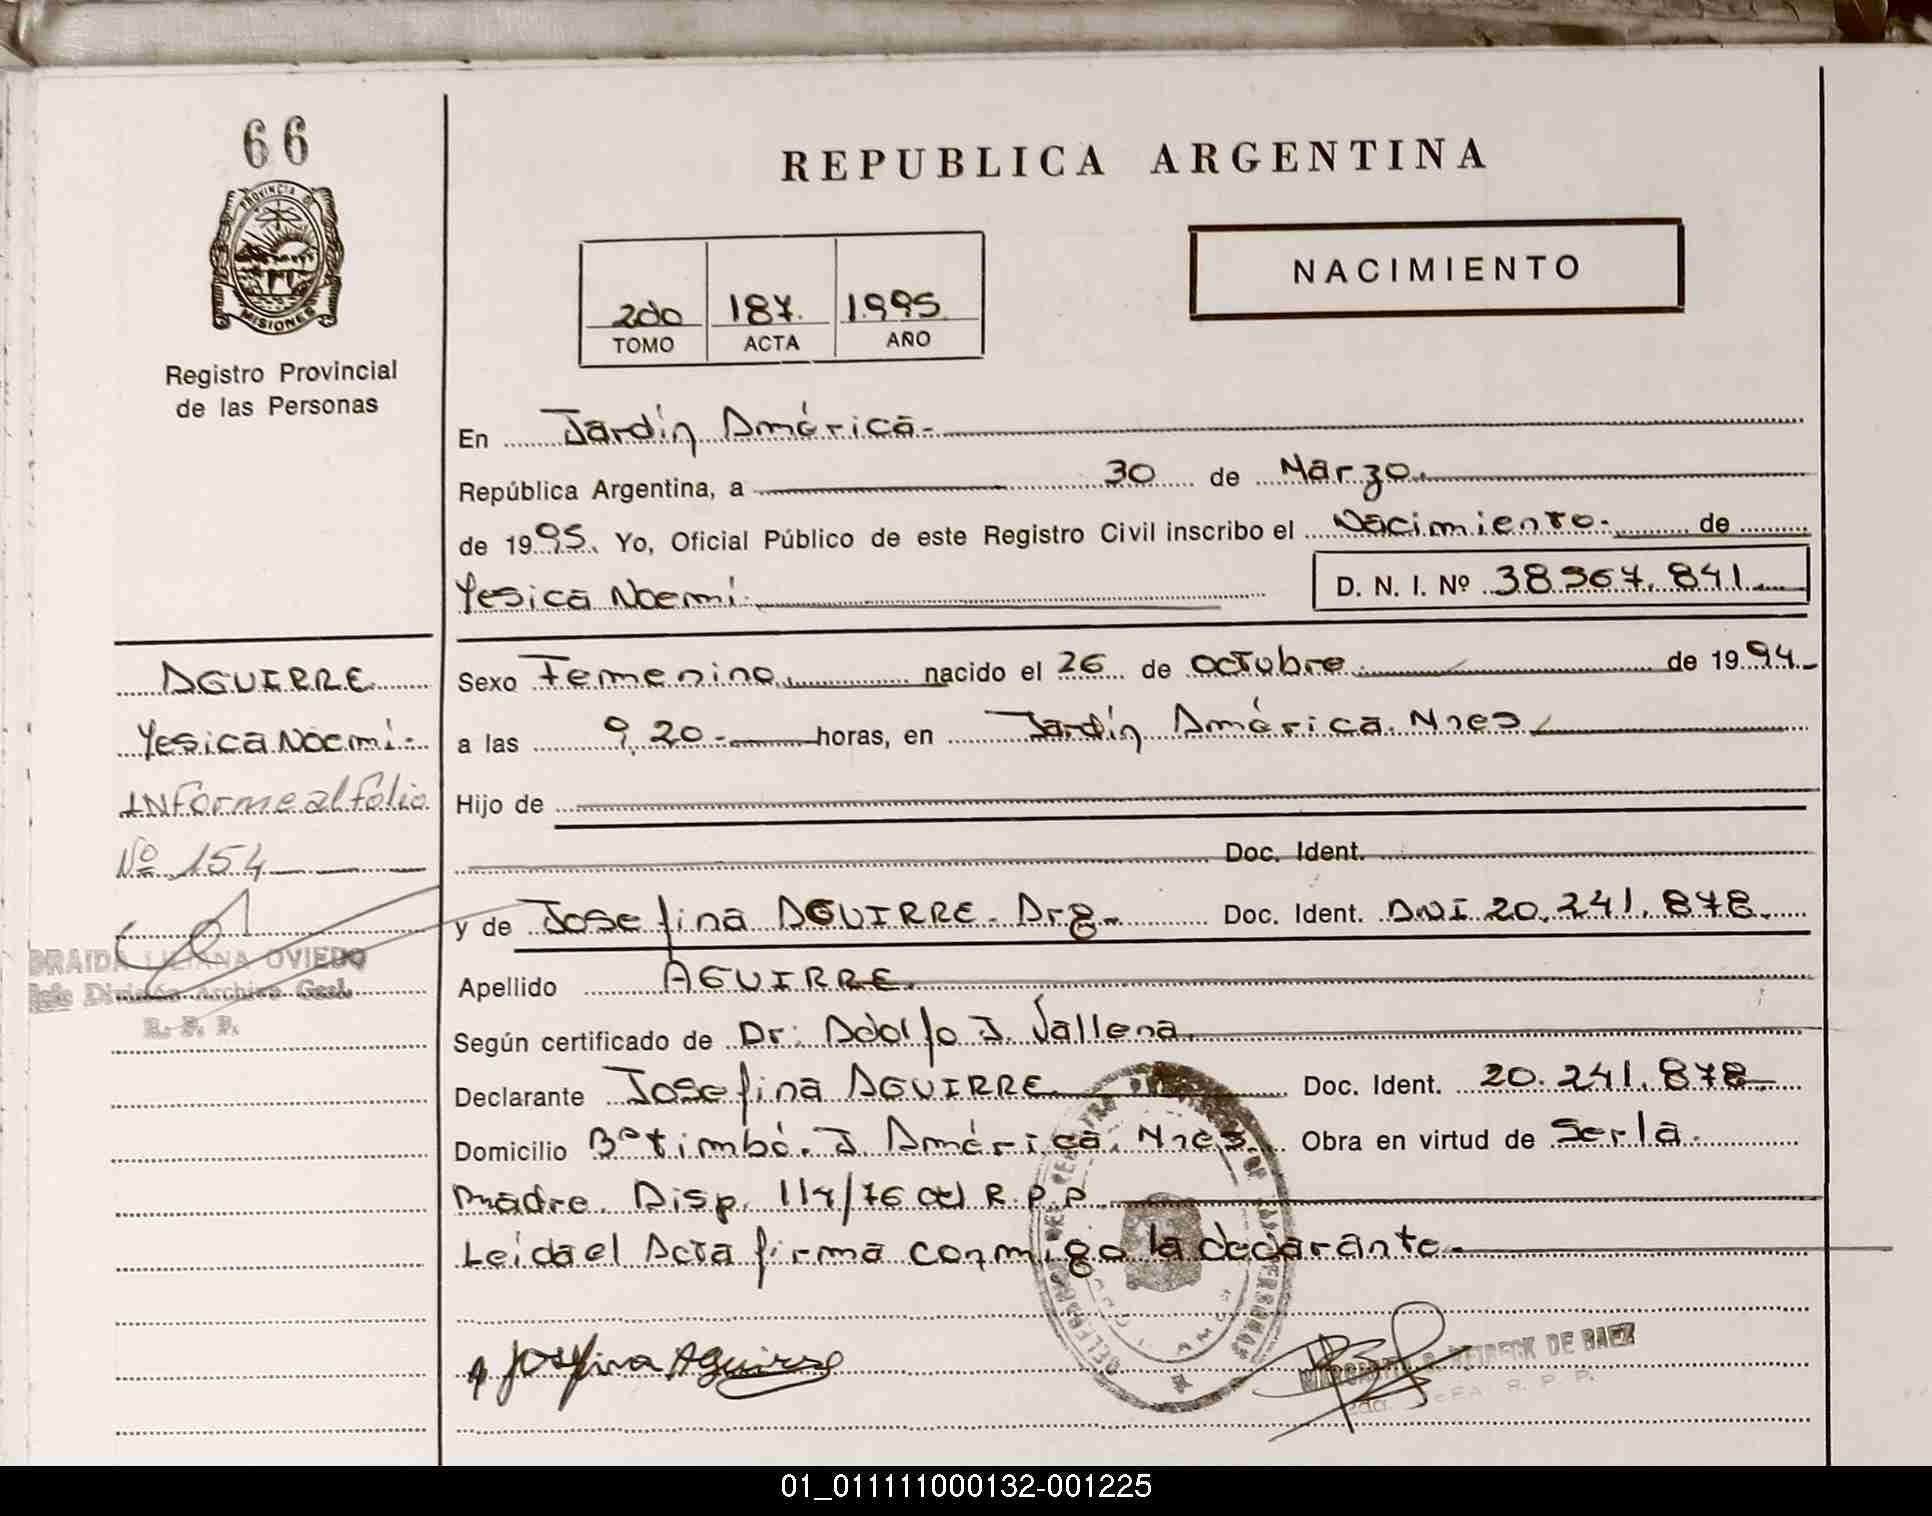 66
PROVINCIA DE
MISIONES
Registro Provincial
de las Personas
REPUBLICA ARGENTINA
2do 187. 1.995.
TOMO ACTA AÑO
NACIMIENTO
En Jardín América.-
República Argentina, a 30 de Marzo.
de 1995. Yo, Oficial Público de este Registro Civil inscribo el Nacimiento.- de
Yesica Noemi.
D. N. I. Nº 38.967.841.
AGUIRRE
Yesica Noemi.-
Informe al folio
Nº 154
LILIANA OVIEDO
Jefe División Archivo Gral.
R. P. P.
Sexo Femenino. nacido el 26 de octubre. de 1994.-
a las 9,20.- horas, en Jardín América. Mnes.
Hijo de
Doc. Ident.
y de Josefina AGUIRRE. Arg.- Doc. Ident. DNI 20.241.878.
Apellido AGUIRRE.
Según certificado de Dr: Adolfo J. Vallena.
Declarante Josefina AGUIRRE. Doc. Ident. 20.241.878-
Domicilio Bº timbó. J. América. Mnes. Obra en virtud de Ser la.
madre. Disp. 117/76 del R.P.P.
Leida el Acta firma conmigo la declarante.-
Josefina Aguirre
DE BAEZ
R. P. P.
01_011111000132-001225